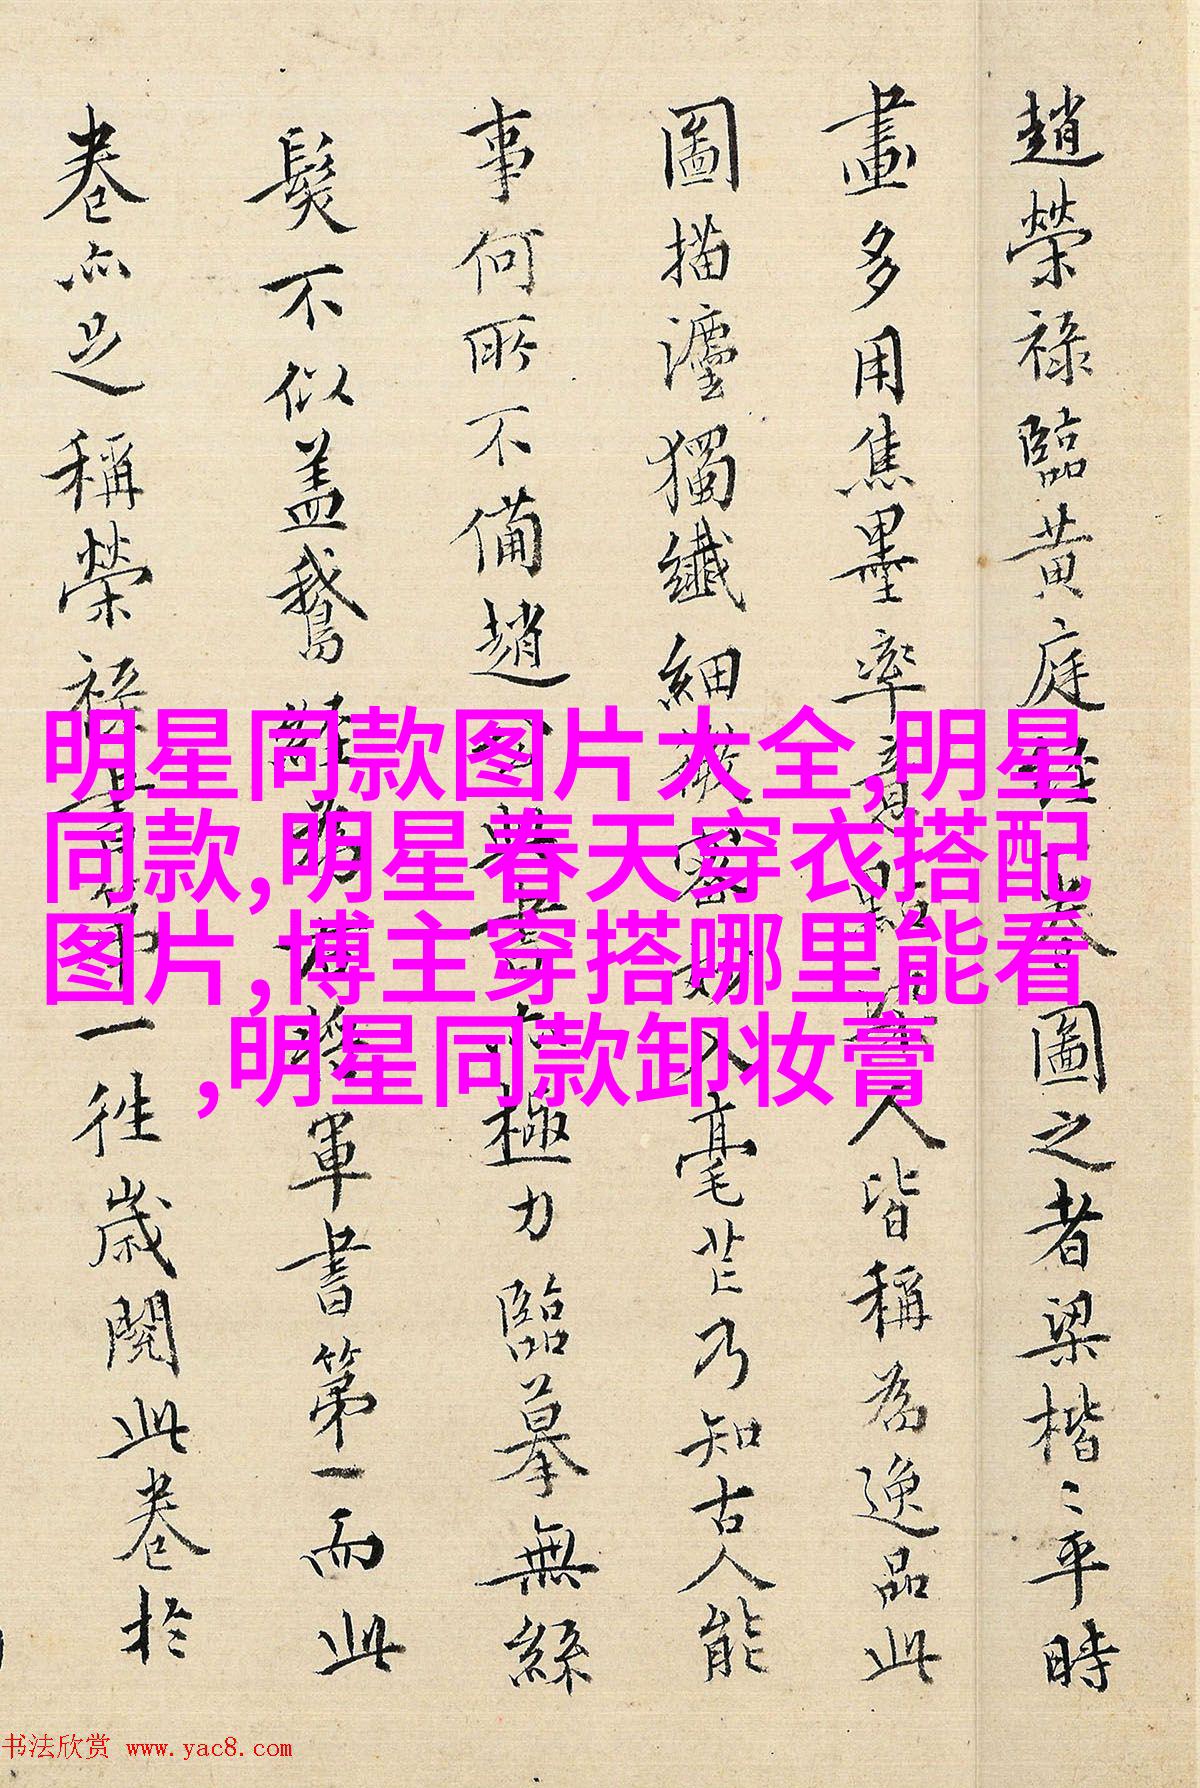 趙榮祿臨黃庭經卷圖之者梁楷〻平時
畫多用焦墨率意點人皆稱為逸品此
圖描灋獨纖細微密妙入毫芒乃知古人能
事何所不備趙公書亦極力臨摹無絲
髮不似盖鵝經為右將軍書第一而此
卷亦足稱榮祿書第一往歲閱此卷於
明星同款图片大全,明星
同款,明星春天穿衣搭配
图片,博主穿搭哪里能看
,明星同款卸妆膏
书法欣赏 www.yac8.com